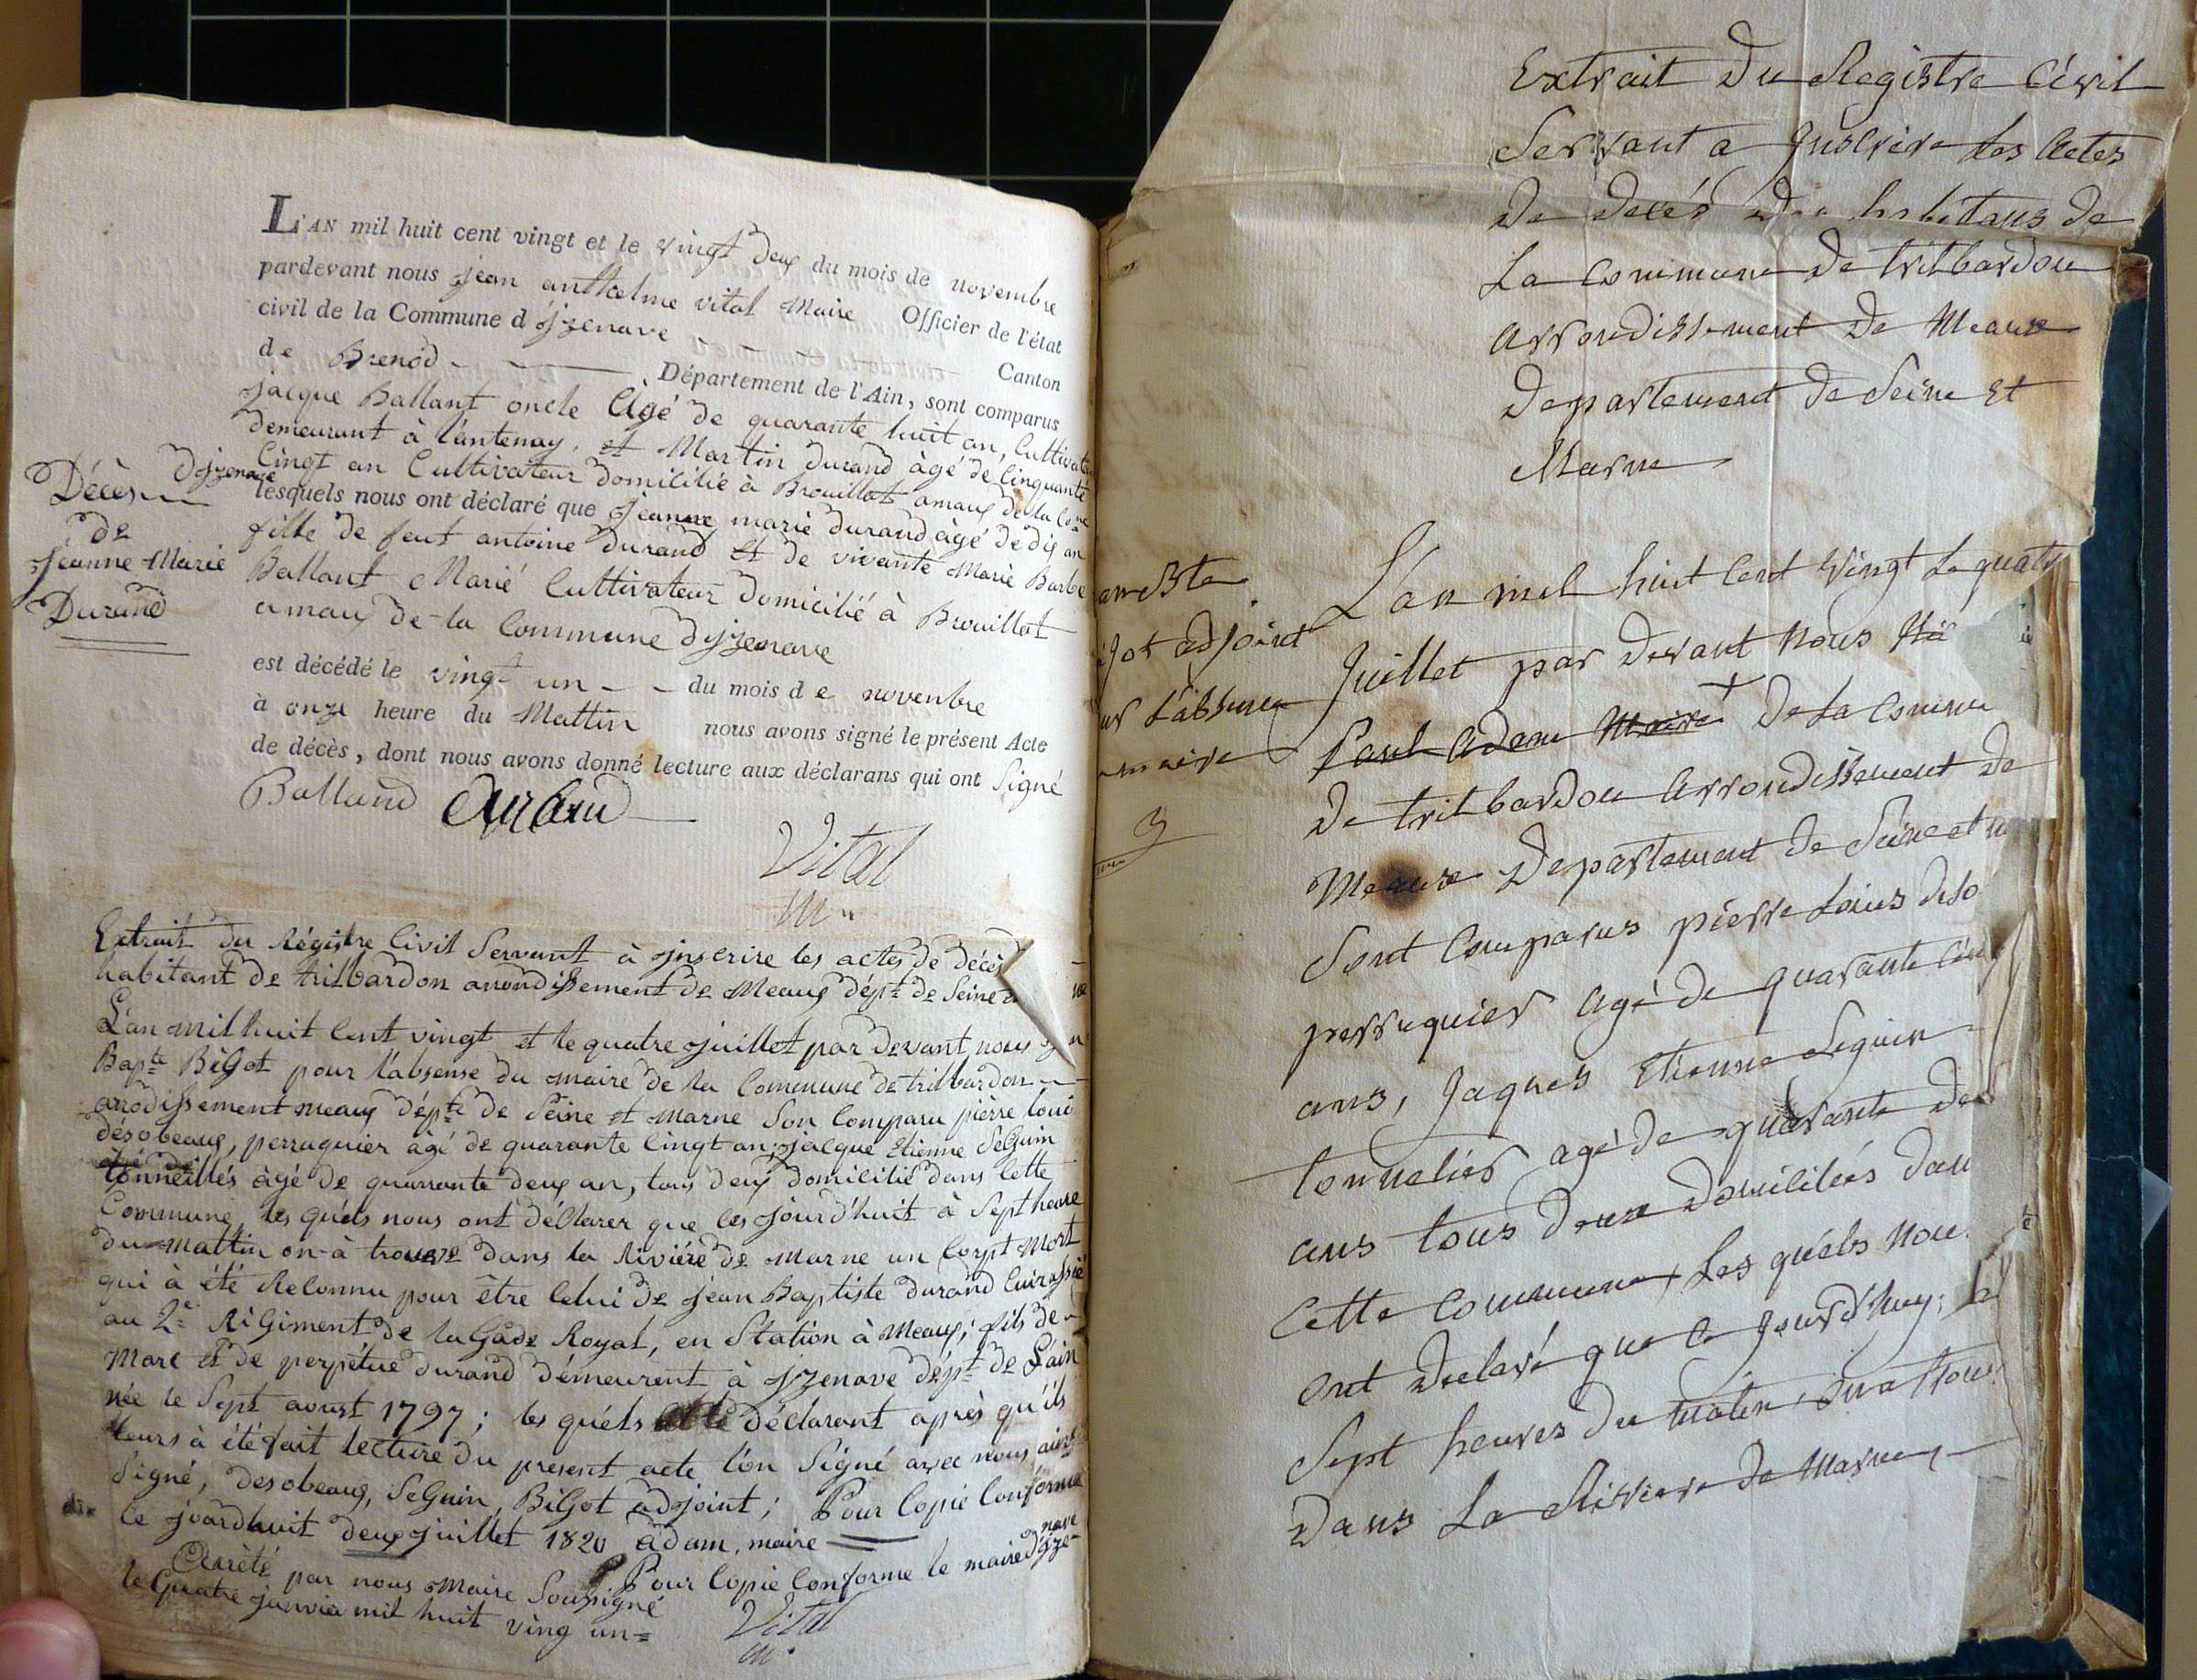 L'AN mil huit cent vingt et le vingt deux du mois de novembre
pardevant nous jean anthelme vital Maire Officier de l'état
civil de la Commune d'jzenave Canton
de Brenod Département de l'Ain, sont comparus
jacque Ballant oncle âgé de quarante huit an, Cultivateur
demeurant à lantenay, et Martin durand àgé de Cinquante
Cingt an Cultivateur domicilié à Brouillat amaux de la Com̃e
d'jzenave
lesquels nous ont déclaré que jeanne marie durand àgé de dix an
fille de feut antoine durand et de vivante Marie Barbe
Ballant Marié Cultivateur domicilié à Brouillat
amaux de la Commune d'jzenave
est décédé le vingt un du mois de novenbre
à onze heure du Mattin nous avons signé le présent Acte
de décès, dont nous avons donné lecture aux déclarans qui ont Signé
Balland Durand
Vital
m.
Décès
de
jeanne Marie
Durand
Extrait du Régistre Civil Servant à jnscrire les actes de décès
habitant de trilbardon arrondissement de Meaux dépt. de Seine
L'an mil huit Cent vingt et le quatre juillet par devant nous
Bapte BiGot pour l'absense du maire de la Commune de trilbardon
arrodissement meaux dépte de Seine et Marne Son Comparu pièrre loui
désobeaux, perruquier àgé de quarante Cingt an jacque Etienne SeGuin
tonneilliés àgé de quarrante deux an, tous deux domicilié dans Cette
Commune les quéls nous ont déClarer que Ces jourd'huit à Sept heure
du Mattin on à trouvé dans la Riviére de Marne un Corpt Mort
qui à été Reconnu pour être Celui de jean Baptiste durand Cuirassié
au 2e RéGiment de la Gade Royal, en Station à Meaux; fils de
Marc et de perpétue durand démeurent à jzenave dépt de Lain
née le Sept aoust 1797; les quéls déclarant après qu'ils
leurs à été fait lecture du present acte l'on Signé avec nous
Signé, desobeaux, SeGuin, BiGot adjoint; Pour Copie Conforme
Ce jourdhuit deux juillet 1820 adam, maire
Pour Copie Conforme le maire d'jzenave
Arrèté par nous Maire Soussigné
le Quatre janvié mil huit ving un
Vital
m.
Extrait Du Registre Cévil
Servant a Inscrire Les Actes
De Décés Des habitans de
La Commune De trilbardou
Arrondissement De Meaux
Departement de Seine Et
Marne
an Bte
igot adjoint
ur L'absence
maire
L'an mil huit Cent Vingt Le quatr
Juillet par Devant Nous
Paul Adam Maire De La Commu
De trilbardou Arrondissement De
Meaux Departement de Seine et
Sont Comparus pierre Louis deso
perruquier Agé de quarante Cin
ans, Jaques Etienne Seguin
tonnelier agé de quarante de
ans tous deux Domiciliés dan
Cette Commune, Les quéls nou
Ont Declaré que Ce Jourd'huy,
Sept heures Du matin, on a trou
Dans La Riviere de Marne,